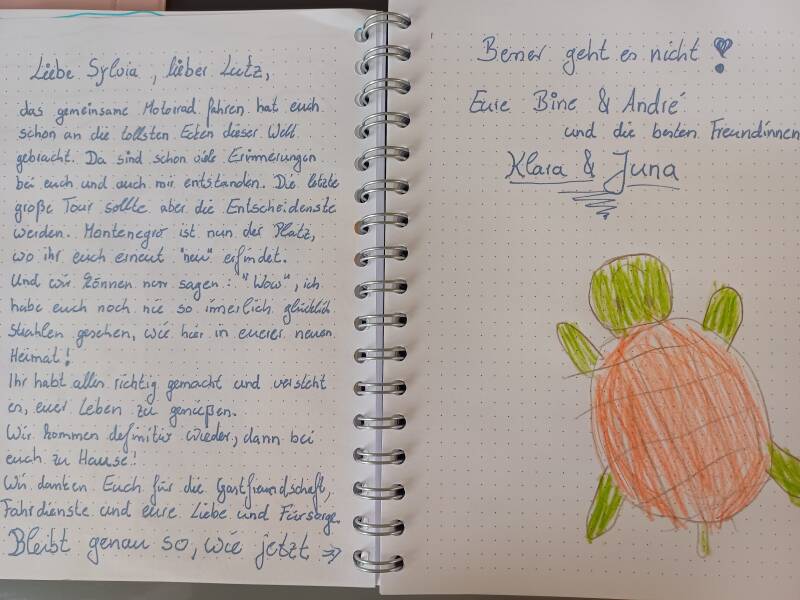 Liebe Sylvia, lieber Lutz,
das gemeinsame Motorrad fahren hat euch
schon an die tollsten Ecken dieser Welt
gebracht. Da sind schon viele Erinnerungen
bei euch und auch mir entstanden. Die letzte
große Tour sollte aber die Entscheidenste
werden. Montenegro ist nun der Platz,
wo ihr euch erneut "neu" erfindet.
Und wir können nur sagen: "Wow", ich
habe euch noch nie so innerlich glücklich
strahlen gesehen, wie hier in eurer neuen
Heimat!
Ihr habt alles richtig gemacht und versteht
es, euer Leben zu genießen.
Wir kommen definitiv wieder, dann bei
euch zu Hause!
Wir danken Euch für die Gastfreundschaft,
Fahrdienste und eure Liebe und Fürsorge.
Bleibt genau so, wie jetzt ⇒
Besser geht es nicht!
Eure Bine & André
und die besten Freundinnen
Klara & Juna